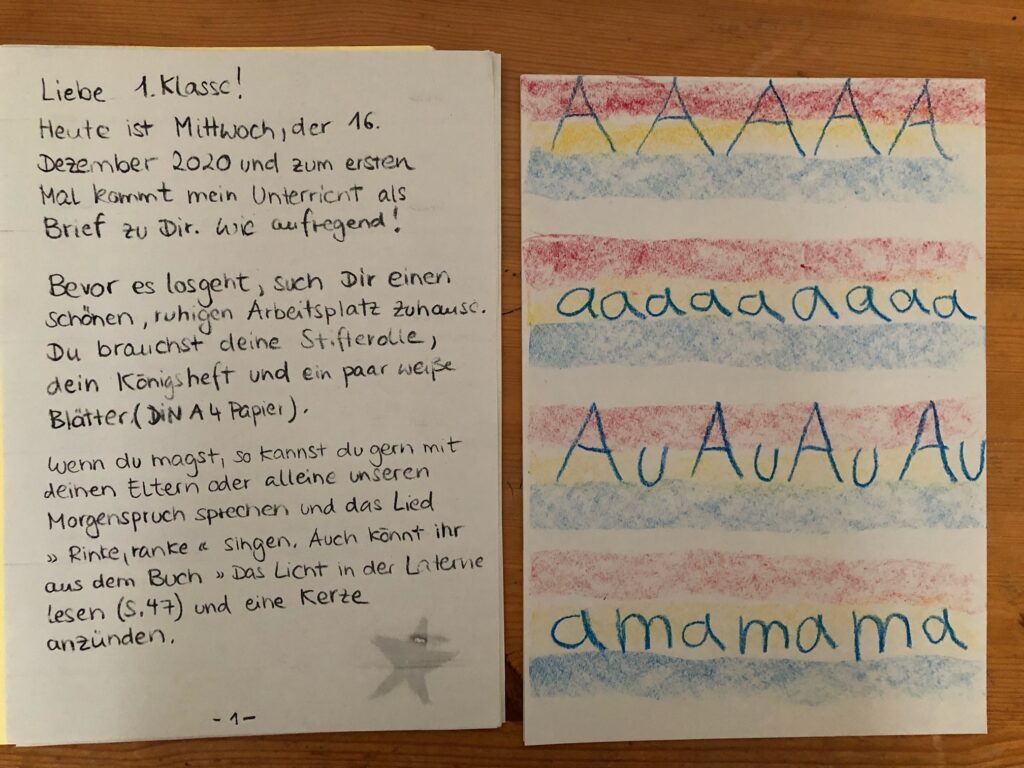 Liebe 1. Klasse!
Heute ist Mittwoch, der 16.
Dezember 2020 und zum ersten
Mal kommt mein Unterricht als
Brief zu Dir. Wie aufregend!
Bevor es losgeht, such Dir einen
schönen, ruhigen Arbeitsplatz zuhause.
Du brauchst deine Stifterolle,
dein Königsheft und ein paar weiße
Blätter (DIN A4 Papier).
Wenn du magst, so kannst du gern mit
deinen Eltern oder alleine unseren
Morgenspruch sprechen und das Lied
» Rinke, ranke « singen. Auch könnt ihr
aus dem Buch » Das Licht in der Laterne
lesen (S. 47) und eine Kerze
anzünden.
- 1 -
A A A A A
a a a a a a a a a
Au Au Au Au
a m a m a m a